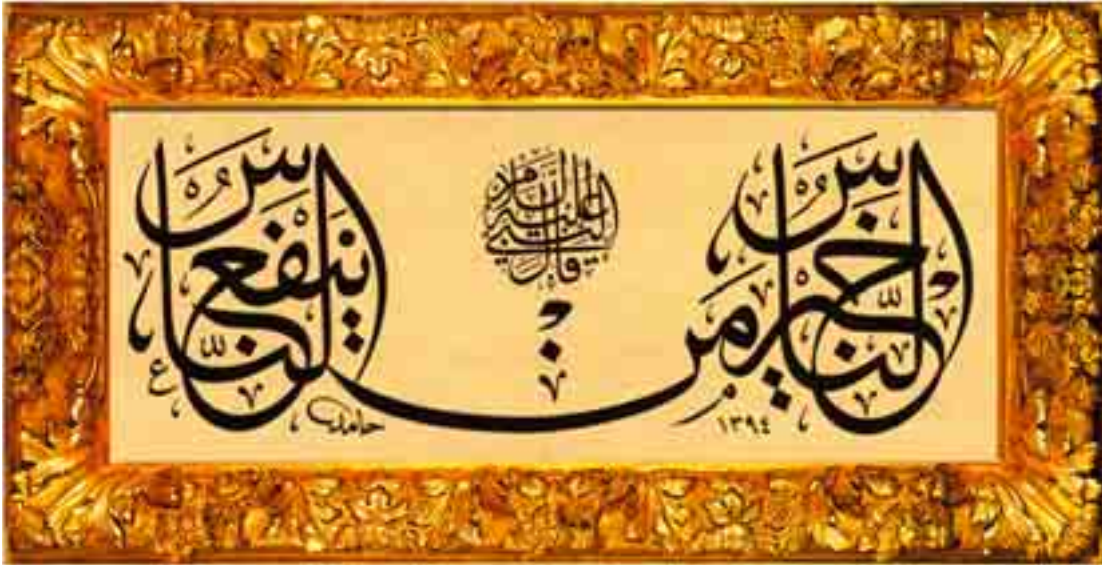 قال النبي عليه السلام
خَيْرُ النَّاسِ مَنْ يَنْفَعُ النَّاسَ
حامد
١٣٩٤